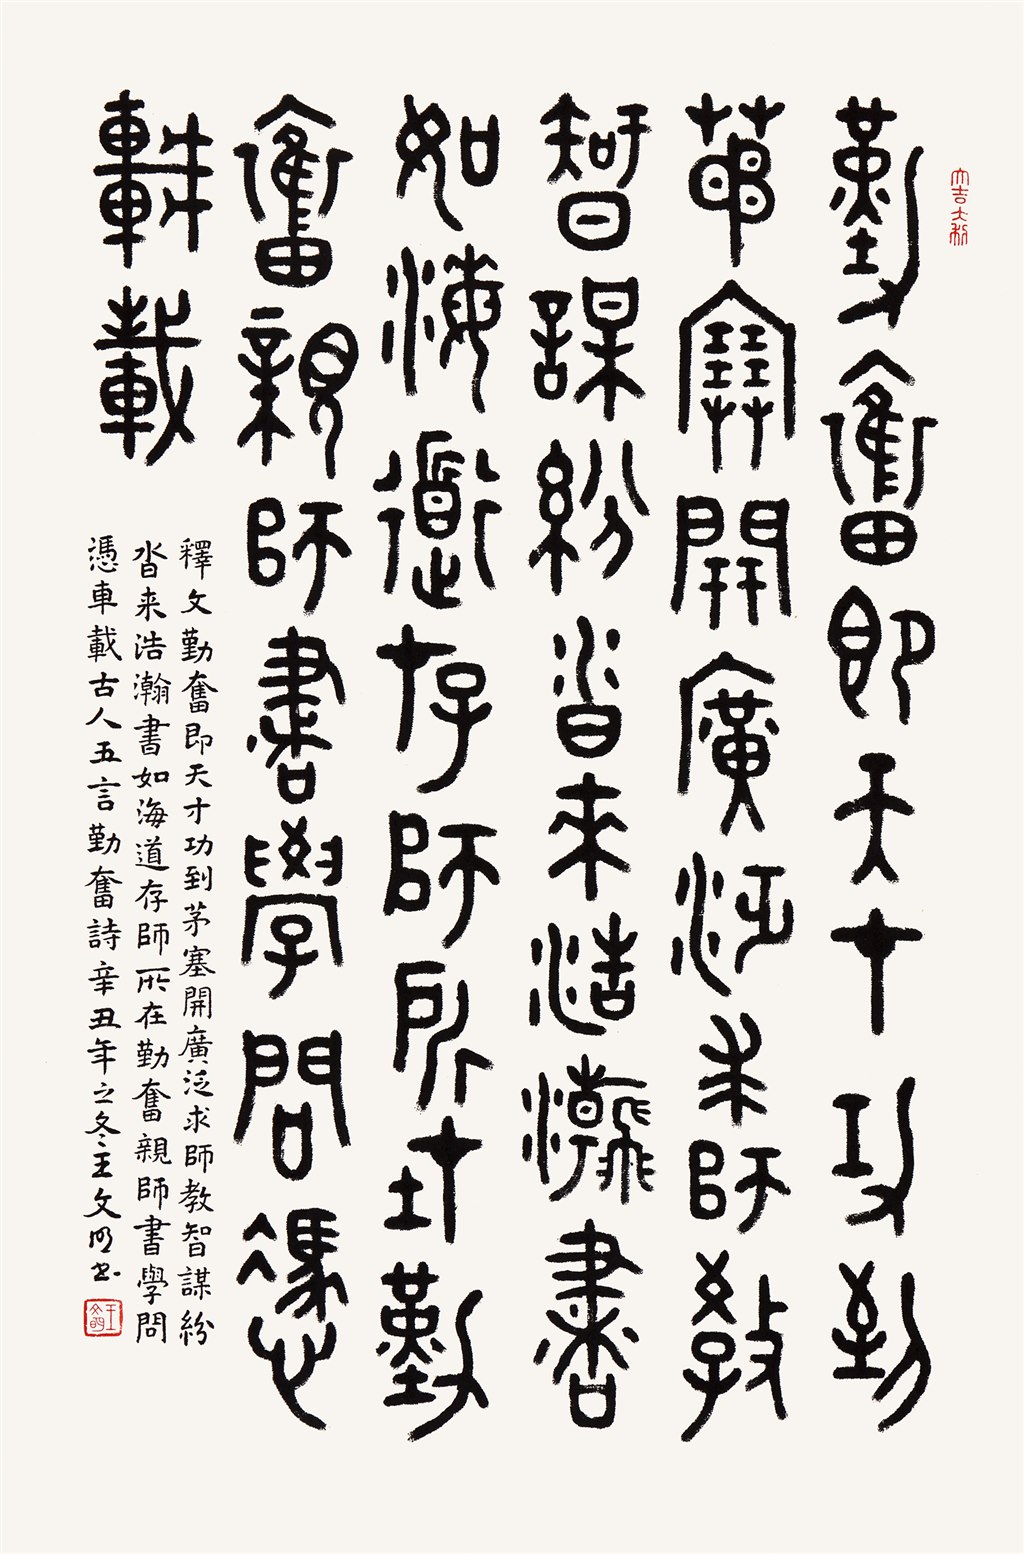 大吉大利
勤奮即天才功到
茅塞開廣泛求師教
智謀紛沓來浩瀚書
如海道存師所在勤
奮親師書學問憑
車載
釋文勤奮即天才功到茅塞開廣泛求師教智謀紛
沓来浩瀚書如海道存師所在勤奮親師書學問
憑車載古人五言勤奮詩辛丑年之冬王文明书
王文明